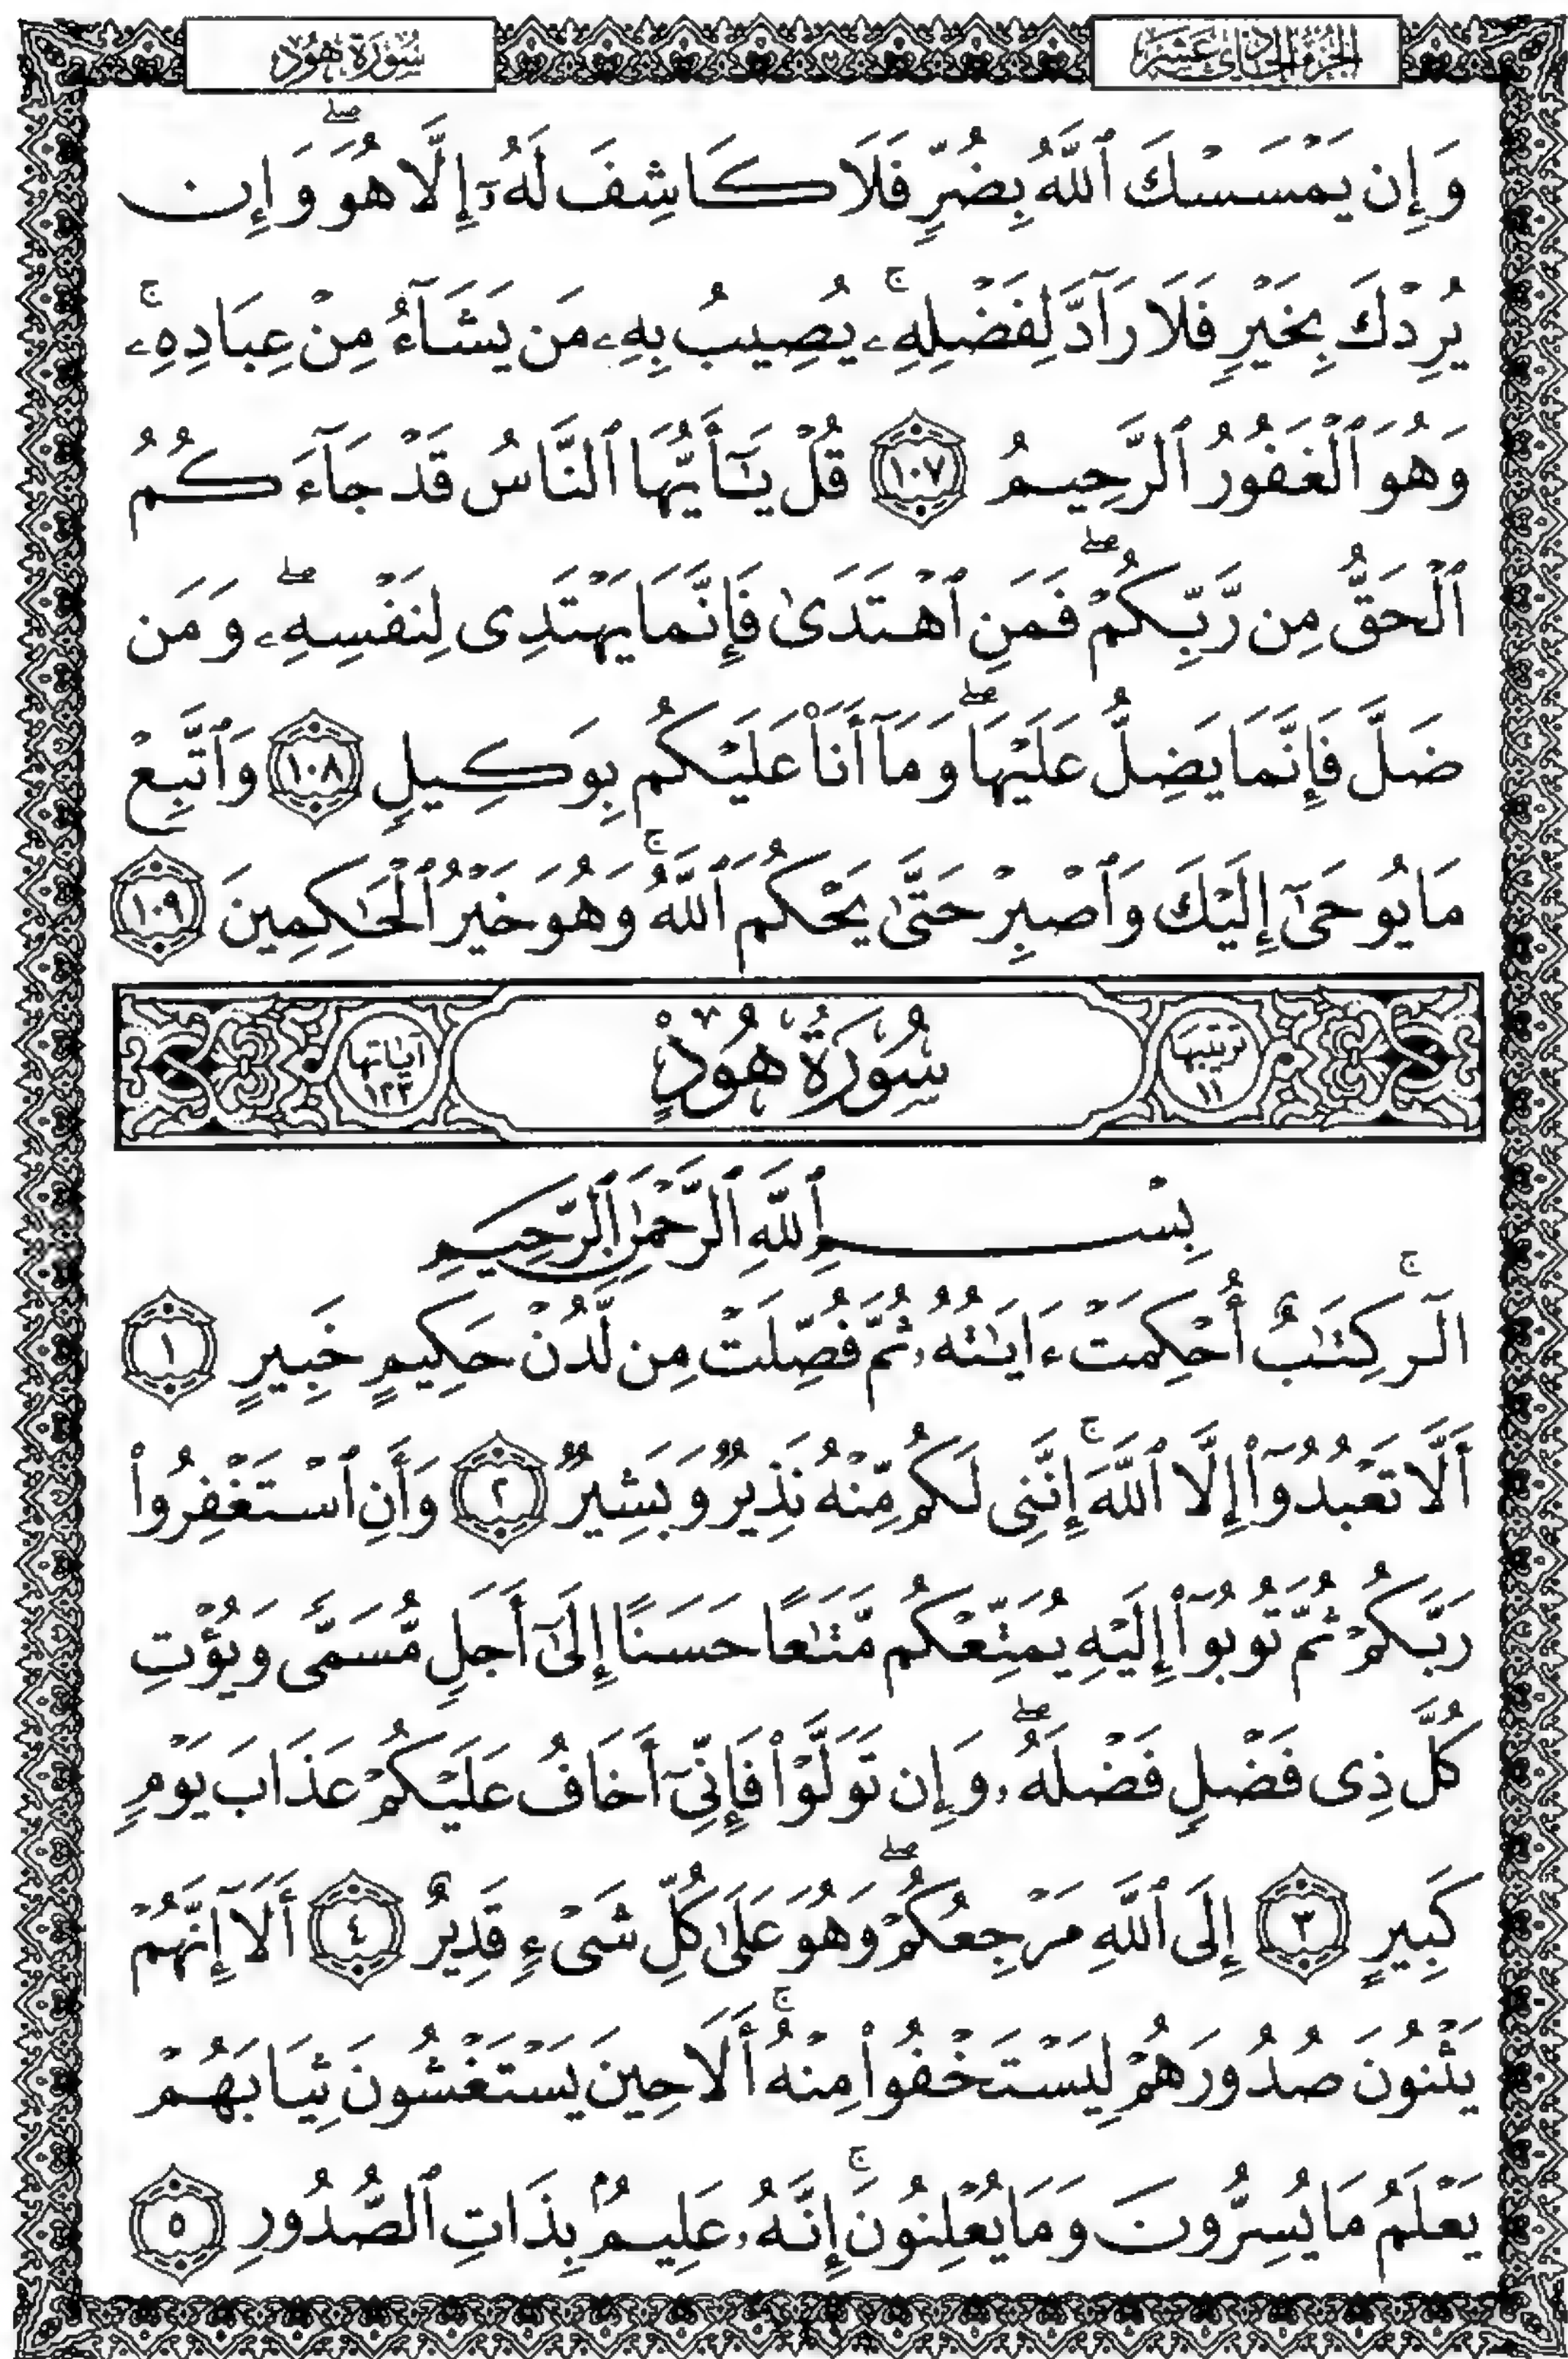 الجزء الحادي عشر
سُورَةُ هُودٍ
وَإِن يَمْسَسْكَ ٱللَّهُ بِضُرٍّ فَلَا كَاشِفَ لَهُۥٓ إِلَّا هُوَ ۖ وَإِن
يُرِدْكَ بِخَيْرٍ فَلَا رَآدَّ لِفَضْلِهِۦ ۚ يُصِيبُ بِهِۦ مَن يَشَآءُ مِنْ عِبَادِهِۦ ۚ
وَهُوَ ٱلْغَفُورُ ٱلرَّحِيمُ ١٠٧ قُلْ يَـٰٓأَيُّهَا ٱلنَّاسُ قَدْ جَآءَكُمُ
ٱلْحَقُّ مِن رَّبِّكُمْ ۖ فَمَنِ ٱهْتَدَىٰ فَإِنَّمَا يَهْتَدِى لِنَفْسِهِۦ ۖ وَمَن
ضَلَّ فَإِنَّمَا يَضِلُّ عَلَيْهَا ۖ وَمَآ أَنَا۠ عَلَيْكُم بِوَكِيلٍ ١٠٨ وَٱتَّبِعْ
مَا يُوحَىٰٓ إِلَيْكَ وَٱصْبِرْ حَتَّىٰ يَحْكُمَ ٱللَّهُ ۚ وَهُوَ خَيْرُ ٱلْحَـٰكِمِينَ ١٠٩
ترتيبها ١١
سُورَةُ هُودٍ
آياتها ١٢٣
بِسْمِ ٱللَّهِ ٱلرَّحْمَـٰنِ ٱلرَّحِيمِ
الٓر ۚ كِتَـٰبٌ أُحْكِمَتْ ءَايَـٰتُهُۥ ثُمَّ فُصِّلَتْ مِن لَّدُنْ حَكِيمٍ خَبِيرٍ ١
أَلَّا تَعْبُدُوٓا۟ إِلَّا ٱللَّهَ ۚ إِنَّنِى لَكُم مِّنْهُ نَذِيرٌ وَبَشِيرٌ ٢ وَأَنِ ٱسْتَغْفِرُوا۟
رَبَّكُمْ ثُمَّ تُوبُوٓا۟ إِلَيْهِ يُمَتِّعْكُم مَّتَـٰعًا حَسَنًا إِلَىٰٓ أَجَلٍ مُّسَمًّى وَيُؤْتِ
كُلَّ ذِى فَضْلٍ فَضْلَهُۥ ۖ وَإِن تَوَلَّوْا۟ فَإِنِّىٓ أَخَافُ عَلَيْكُمْ عَذَابَ يَوْمٍ
كَبِيرٍ ٣ إِلَى ٱللَّهِ مَرْجِعُكُمْ ۖ وَهُوَ عَلَىٰ كُلِّ شَىْءٍ قَدِيرٌ ٤ أَلَآ إِنَّهُمْ
يَثْنُونَ صُدُورَهُمْ لِيَسْتَخْفُوا۟ مِنْهُ ۚ أَلَا حِينَ يَسْتَغْشُونَ ثِيَابَهُمْ
يَعْلَمُ مَا يُسِرُّونَ وَمَا يُعْلِنُونَ ۚ إِنَّهُۥ عَلِيمٌۢ بِذَاتِ ٱلصُّدُورِ ٥